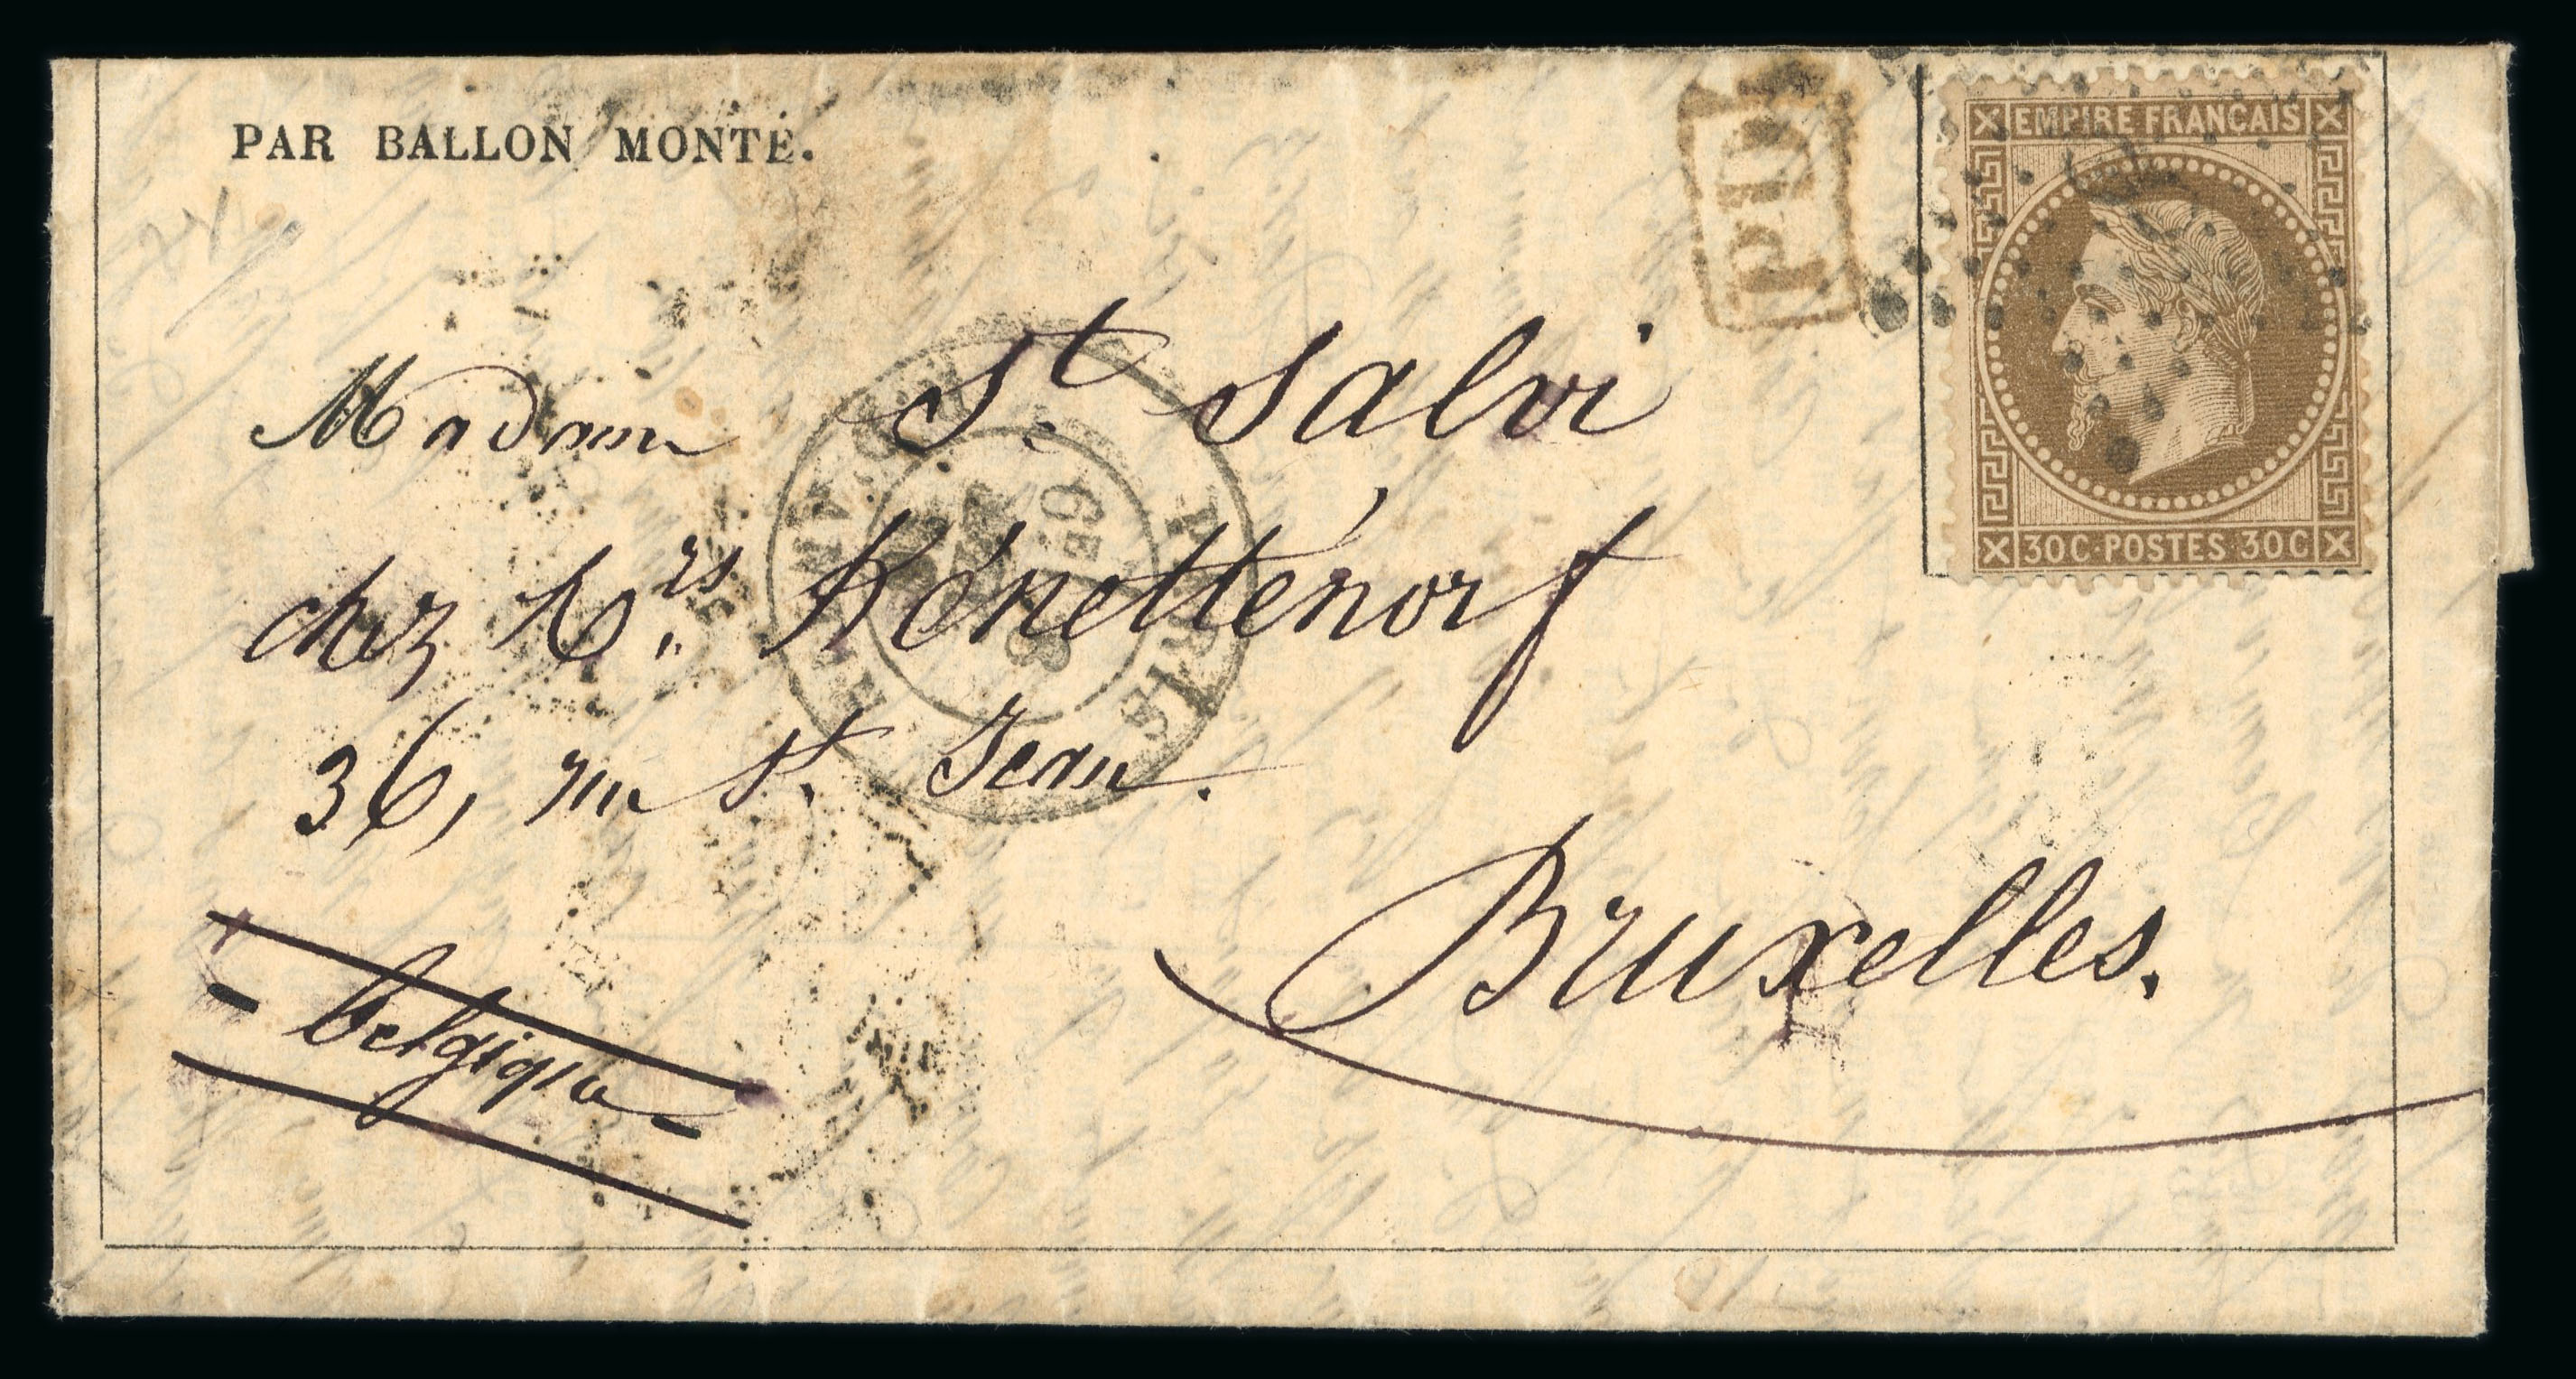 PAR BALLON MONTÉ.
PD
EMPIRE FRANÇAIS
30C·POSTES 30C
Madame St. Salvi
chez Mrs. Kénetténorf
36, rue St. Jean.
Bruxelles.
Belgique
PARIS